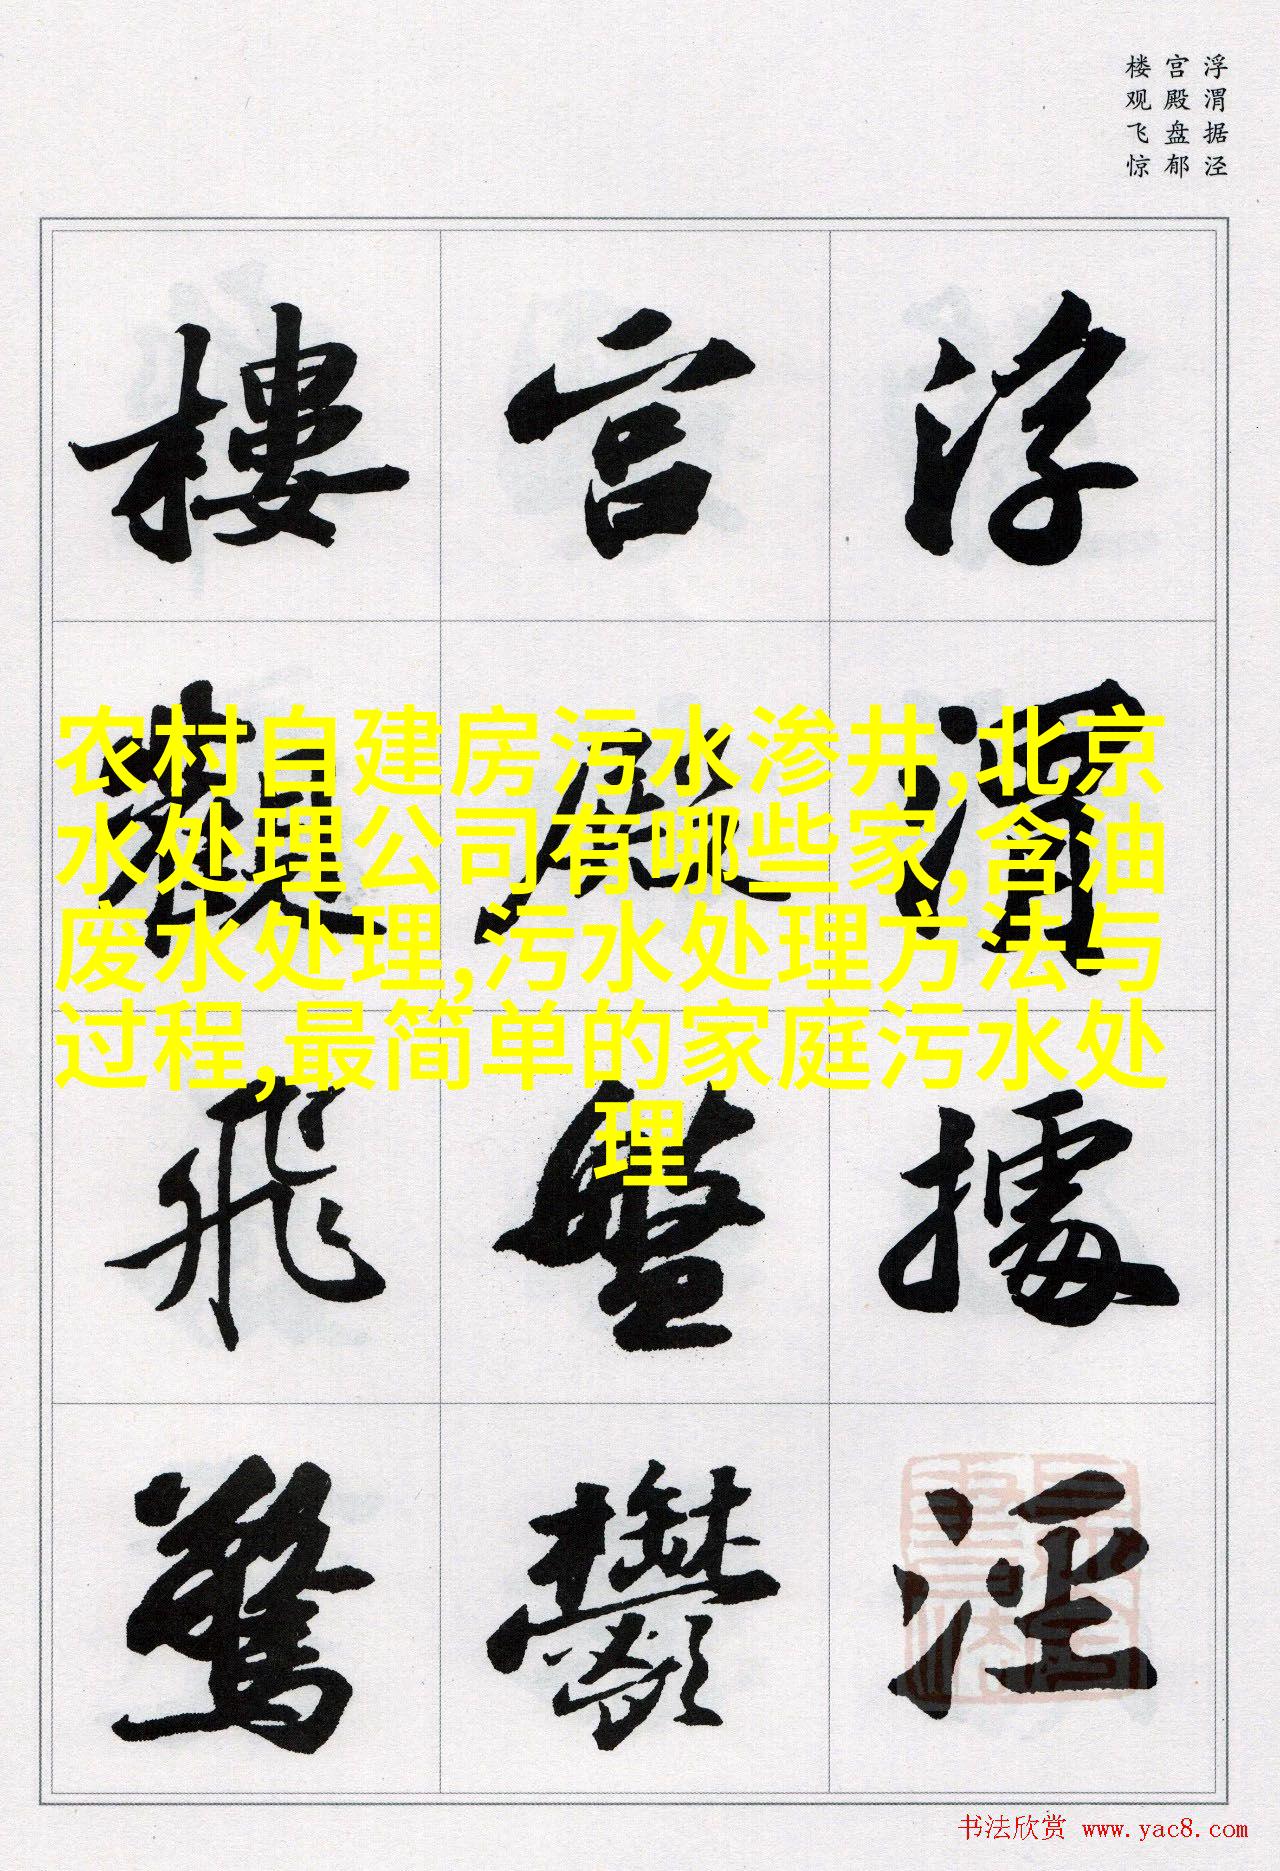 浮渭据泾
宫殿盘郁
楼观飞惊
浮渭據涇
宫殿盤鬱
樓觀飛驚
农村自建房污水渗井,北京
水处理公司有哪些家,含油
废水处理,污水处理方法与
过程,最简单的家庭污水处
理
书法欣赏 www.yac8.com